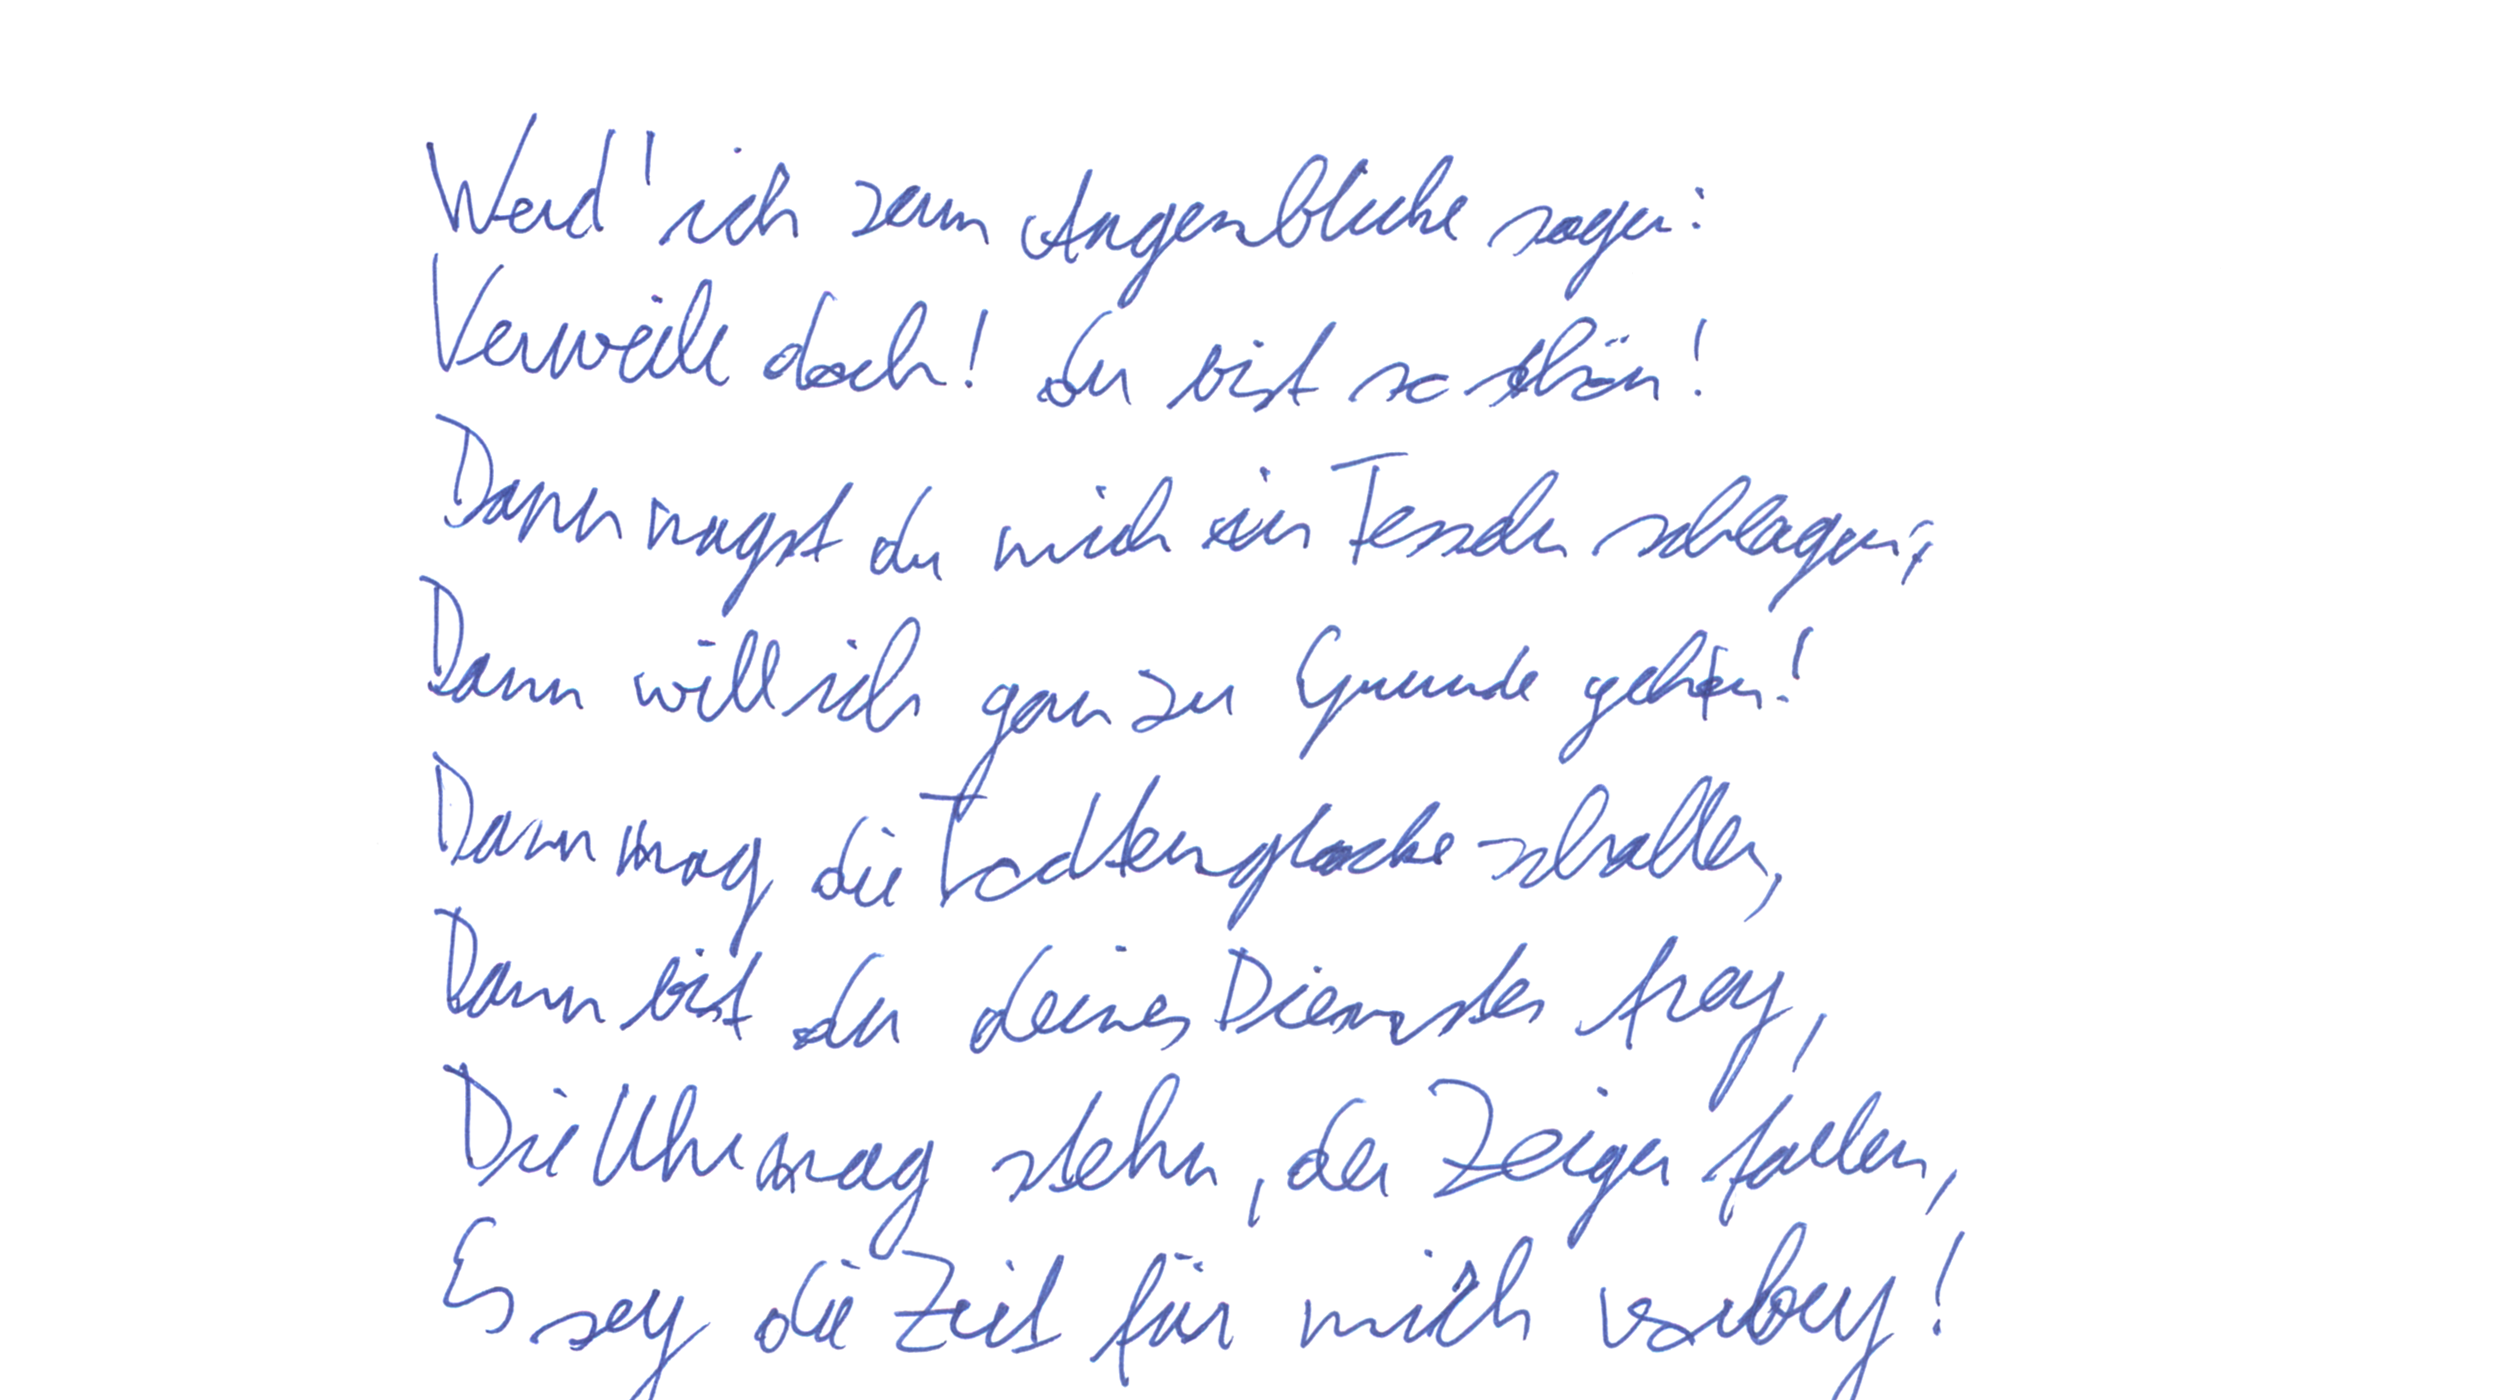 Werd' ich zum Augenblicke sagen:
Verweile doch! Du bist so schön!
Dann magst du mich in Fesseln schlagen,
Dann will ich gern zu Grunde gehen!
Dann mag die Todtenglocke schallen,
Dann bist du deines Dienstes frey,
Die Uhr mag stehn, der Zeiger fallen,
Es sey die Zeit für mich vorbey!